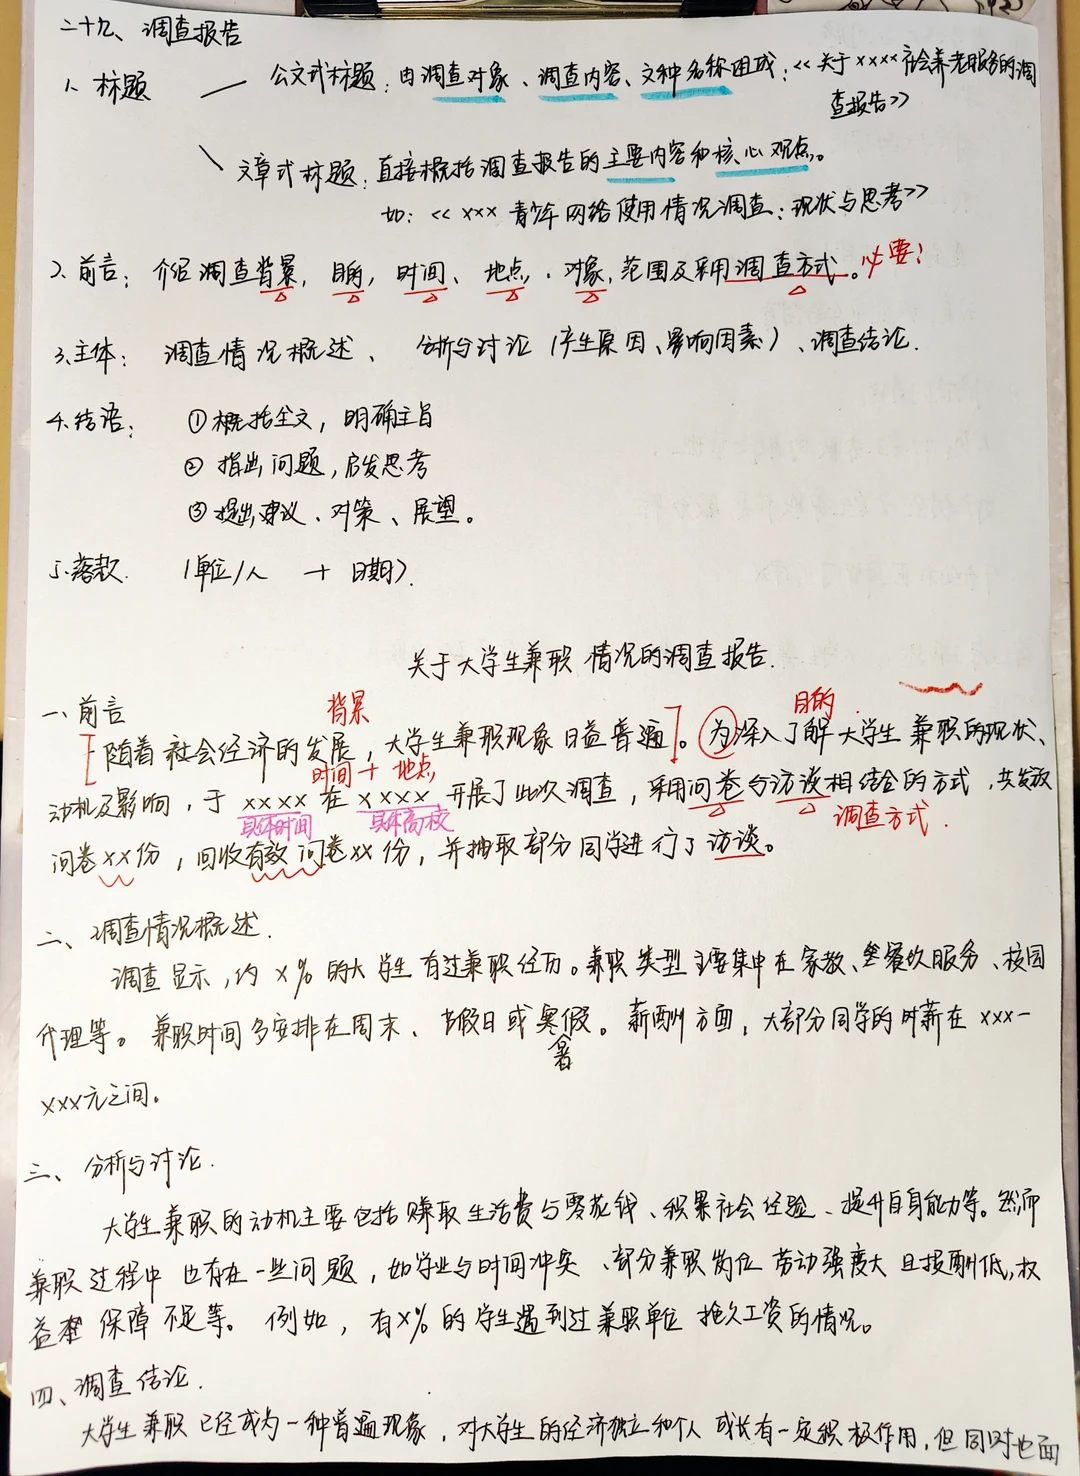 二十九、调查报告
1. 标题
公文式标题：由调查对象、调查内容、文种名称组成：《关于xxxx社会养老服务的调
查报告》
文章式标题：直接概括调查报告的主要内容和核心观点。
如：《xxx青少年网络使用情况调查：现状与思考》
2. 前言：介绍调查背景，目的，时间、地点、对象，范围及采用调查方式。必要！
3. 主体：调查情况概述、分析与讨论（产生原因、影响因素）、调查结论.
4. 结语：①概括全文，明确主旨
②指出问题，启发思考
③提出建议、对策、展望。
5. 落款.（单位/人 + 日期）.
关于大学生兼职情况的调查报告.
一、前言
背景
目的
随着社会经济的发展，大学生兼职现象日益普遍。为深入了解大学生兼职的现状、
时间 + 地点
动机及影响，于xxxx在xxxx开展了此次调查，采用问卷与访谈相结合的方式，共发放
具体时间
具体高校
调查方式.
问卷xx份，回收有效问卷xx份，并抽取部分同学进行了访谈。
二、调查情况概述.
调查显示，约x%的大学生有过兼职经历。兼职类型主要集中在家教、餐饮服务、校园
代理等。兼职时间多安排在周末、节假日或寒假。薪酬方面，大部分同学的时薪在xxx-
暑
xxx元之间。
三、分析与讨论.
大学生兼职的动机主要包括赚取生活费与零花钱、积累社会经验、提升自身能力等。然而
兼职过程中也存在一些问题，如学业与时间冲突、部分兼职岗位劳动强度大且报酬低，权
益 保障不足等。例如，有x%的学生遇到过兼职单位拖欠工资的情况。
四、调查结论.
大学生兼职已经成为一种普遍现象，对大学生的经济独立和个人成长有一定积极作用，但同时也面